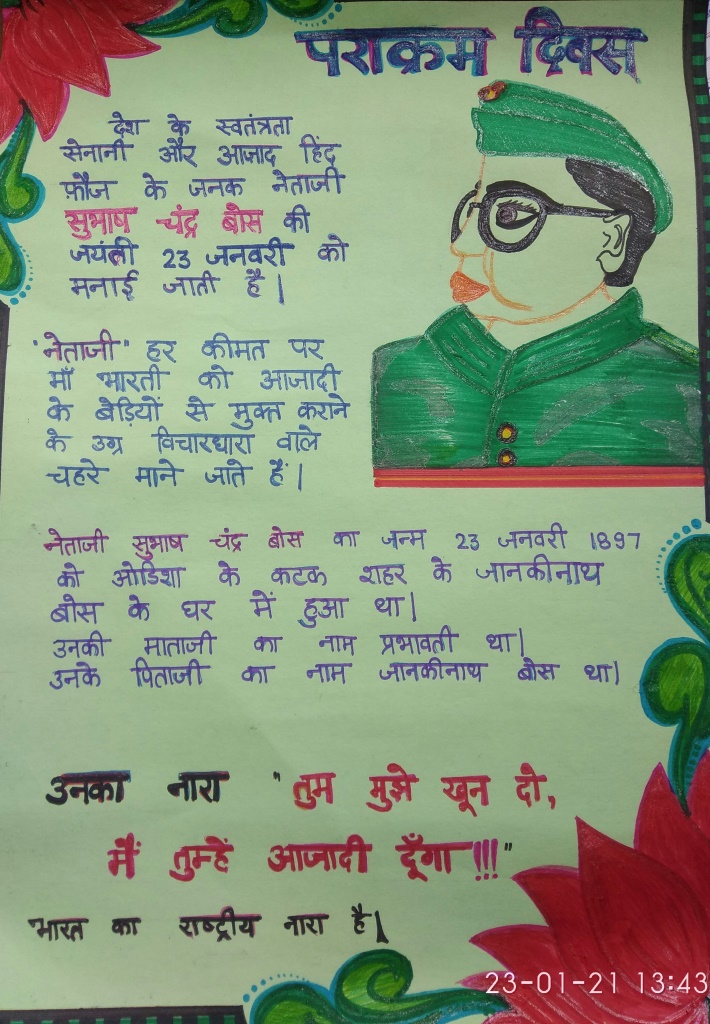 पराक्रम दिवस
देश के स्वतंत्रता
सेनानी और आजाद हिंद
फ़ौज के जनक नेताजी
सुभाष चंद्र बोस की
जयंती 23 जनवरी को
मनाई जाती है|
"नेताजी" हर कीमत पर
माँ भारती को आजादी
के बेड़ियों से मुक्त कराने
के उग्र विचारधारा वाले
चहरे माने जाते हैं|
नेताजी सुभाष चंद्र बोस का जन्म 23 जनवरी 1897
को ओडिशा के कटक शहर के जानकीनाथ
बोस के घर में हुआ था|
उनकी माताजी का नाम प्रभावती था|
उनके पिताजी का नाम जानकीनाथ बोस था|
उनका नारा "तुम मुझे खून दो,
मैं तुम्हें आजादी दूँगा !!!"
भारत का राष्ट्रीय नारा है|
23-01-21 13:43